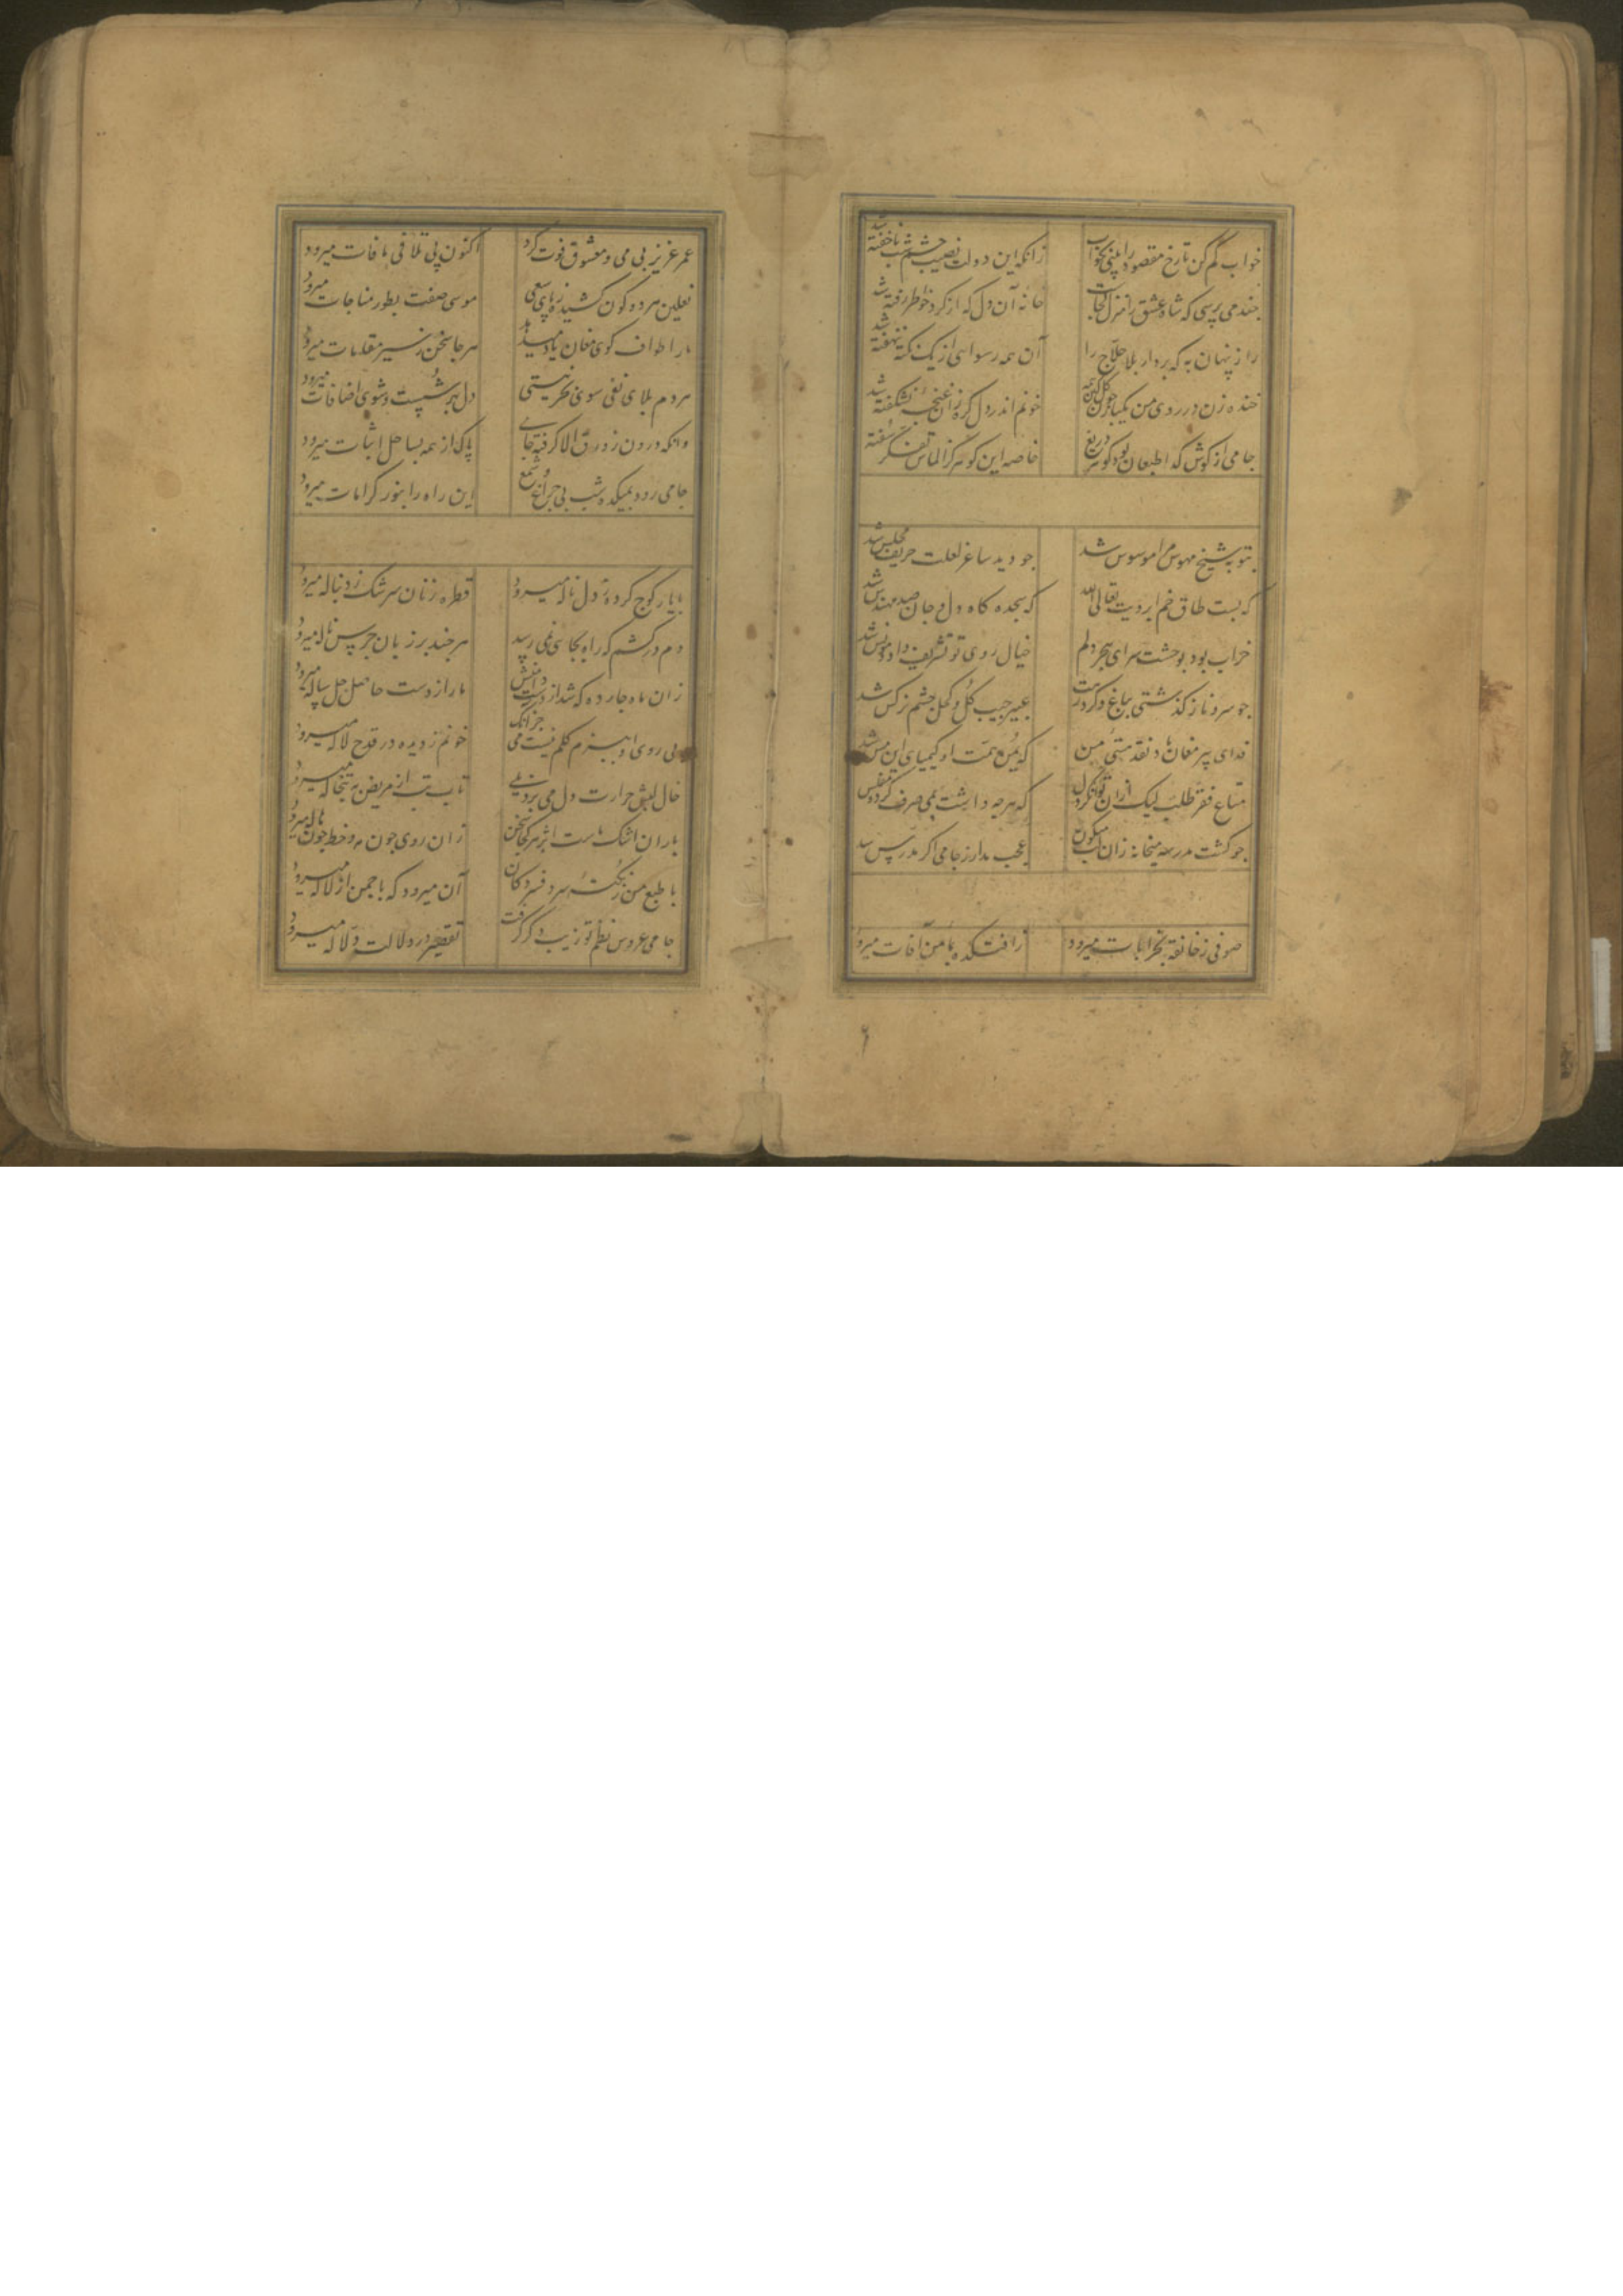 خواب کم کن تا رخ مقصود را بینی بخواب زانکه این دولت نصیب چشم شب ناخفته شد
چند می پرسی که شاه عشق را منزل کجاست خانه آن دل که از کرد خواطر رفته شد
راز پنهان به که بر دار بلا حلاج را آن همه رسوایی از یک نکته ننهفته شد
خنده زن در روی من یکبار چون کل خونم اندر دل کره زان غنجه نشکفته شد
جامی از کوش که اطبعان بود کوهر دریغ خاصه این کوهر کز الماس تفکر سفته شد
بتوبه شیخ مهوس مرا موسوس شد جو دید ساغر لعلت حریف مجلس شد
که بست طاق خم ابرویت تعالی الله که سجده کاه دل و جان صد مهندس شد
خراب بود بوحشت سرای هجر دلم خیال روی تو تشریف داد و مونس شد
جو سرو ناز کذشتی بباغ و کرد رهت عبیر جیب کل و کحل چشم نرکس شد
فدای پیر مغان باد نقد هستی من که یمن همت او کیمیای این مس شد
متاع فقر طلب لیک ازان توانکر دل که هرچه داشت بمی صرف کرد و مفلس شد
جو کشت مدرسه میخانه زان لب میکون عجب مدار ز جامی اکر مدرس شد
صوفی ز خانقه بخرابات میرود ز آفتکده بمامن آفات میرود
عمر عزیز بی می و معشوق فوت کرد اکنون پی تلافی مافات میرود
نعلین هر دو کون کشیده ز پای سعی موسی صفت بطور مناجات میرود
ما را طواف کوی مغان یاد میدهد هر جا سخن ز سیر مقامات میرود
هر دم بلای نفی سوی بحر نیستی دل بهر شست و شوی اضافات میرود
وانکه درون زورق الا کرفته جای پاک از همه بساحل اثبات میرود
جامی رود بمیکده شب بی چراغ و شمع این راه را بنور کرامات میرود
با یار کوچ کرده دل ناله میرود قطره زنان سرشک ز دنباله میرود
دم در کشم که راه بجایی نمی رسد هر چند بر زبان جرس ناله میرود
زان ماه جارده که شد از دست دامنش ما را ز دست حاصل چل ساله میرود
بی روی او ببزم کلم نیست می جز آنک خونم ز دیده در قدح لاله میرود
خال لبش حرارت دل می برد بلی تاب تب از مریض به تبخاله میرود
باران اشک ماست اثر هر کجا سخن زان روی چون مه و خط چون هاله میرود
با طبع من ز نکته سرد فسردکان آن میرود که با جمن از لاله میرود
جامی عروس نظم تو زیب دکر کرفت تقصیر در دلالت دلاله میرود